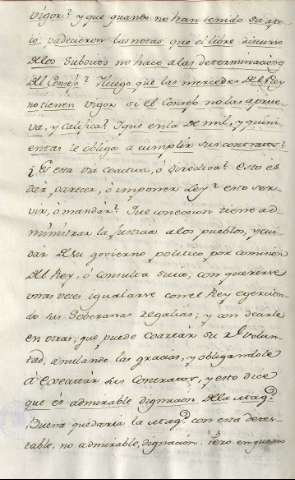 vigor? y que quanto no han tenido efecto
padecieron las notas que el libre discurso
de los Subditos no hace a las determinaciones
del Consejo? Luego que las mercedes del Rey
no tienen vigor si el Consejo no las aprue-
va, y califica? Y que en la de mil, y quini-
entas le obliga a cumplir sus contratos?
Es esta via coactiva, ó directiva? Esto es
dar parecer, ó imponer Ley? esto ser-
vir, ó mandar? Que conexion tiene ad-
ministrar la Justicia a los pueblos, y cui-
dar de su govierno politico por comision
del Rey, ó Consulta suya, con quererse
unas veces igualarse con el Rey exercien-
do sus Soberanas regalias; y con decirle
en otras, que puede coartar su Rl volun-
tad, anulando las gracias, y obligandole
á executar sus Contratos, y esto dice
que es admirable dignacion de la Magd
Buena quedaria la Magd con esta detes-
table, no admirable, dignacion. Pero en